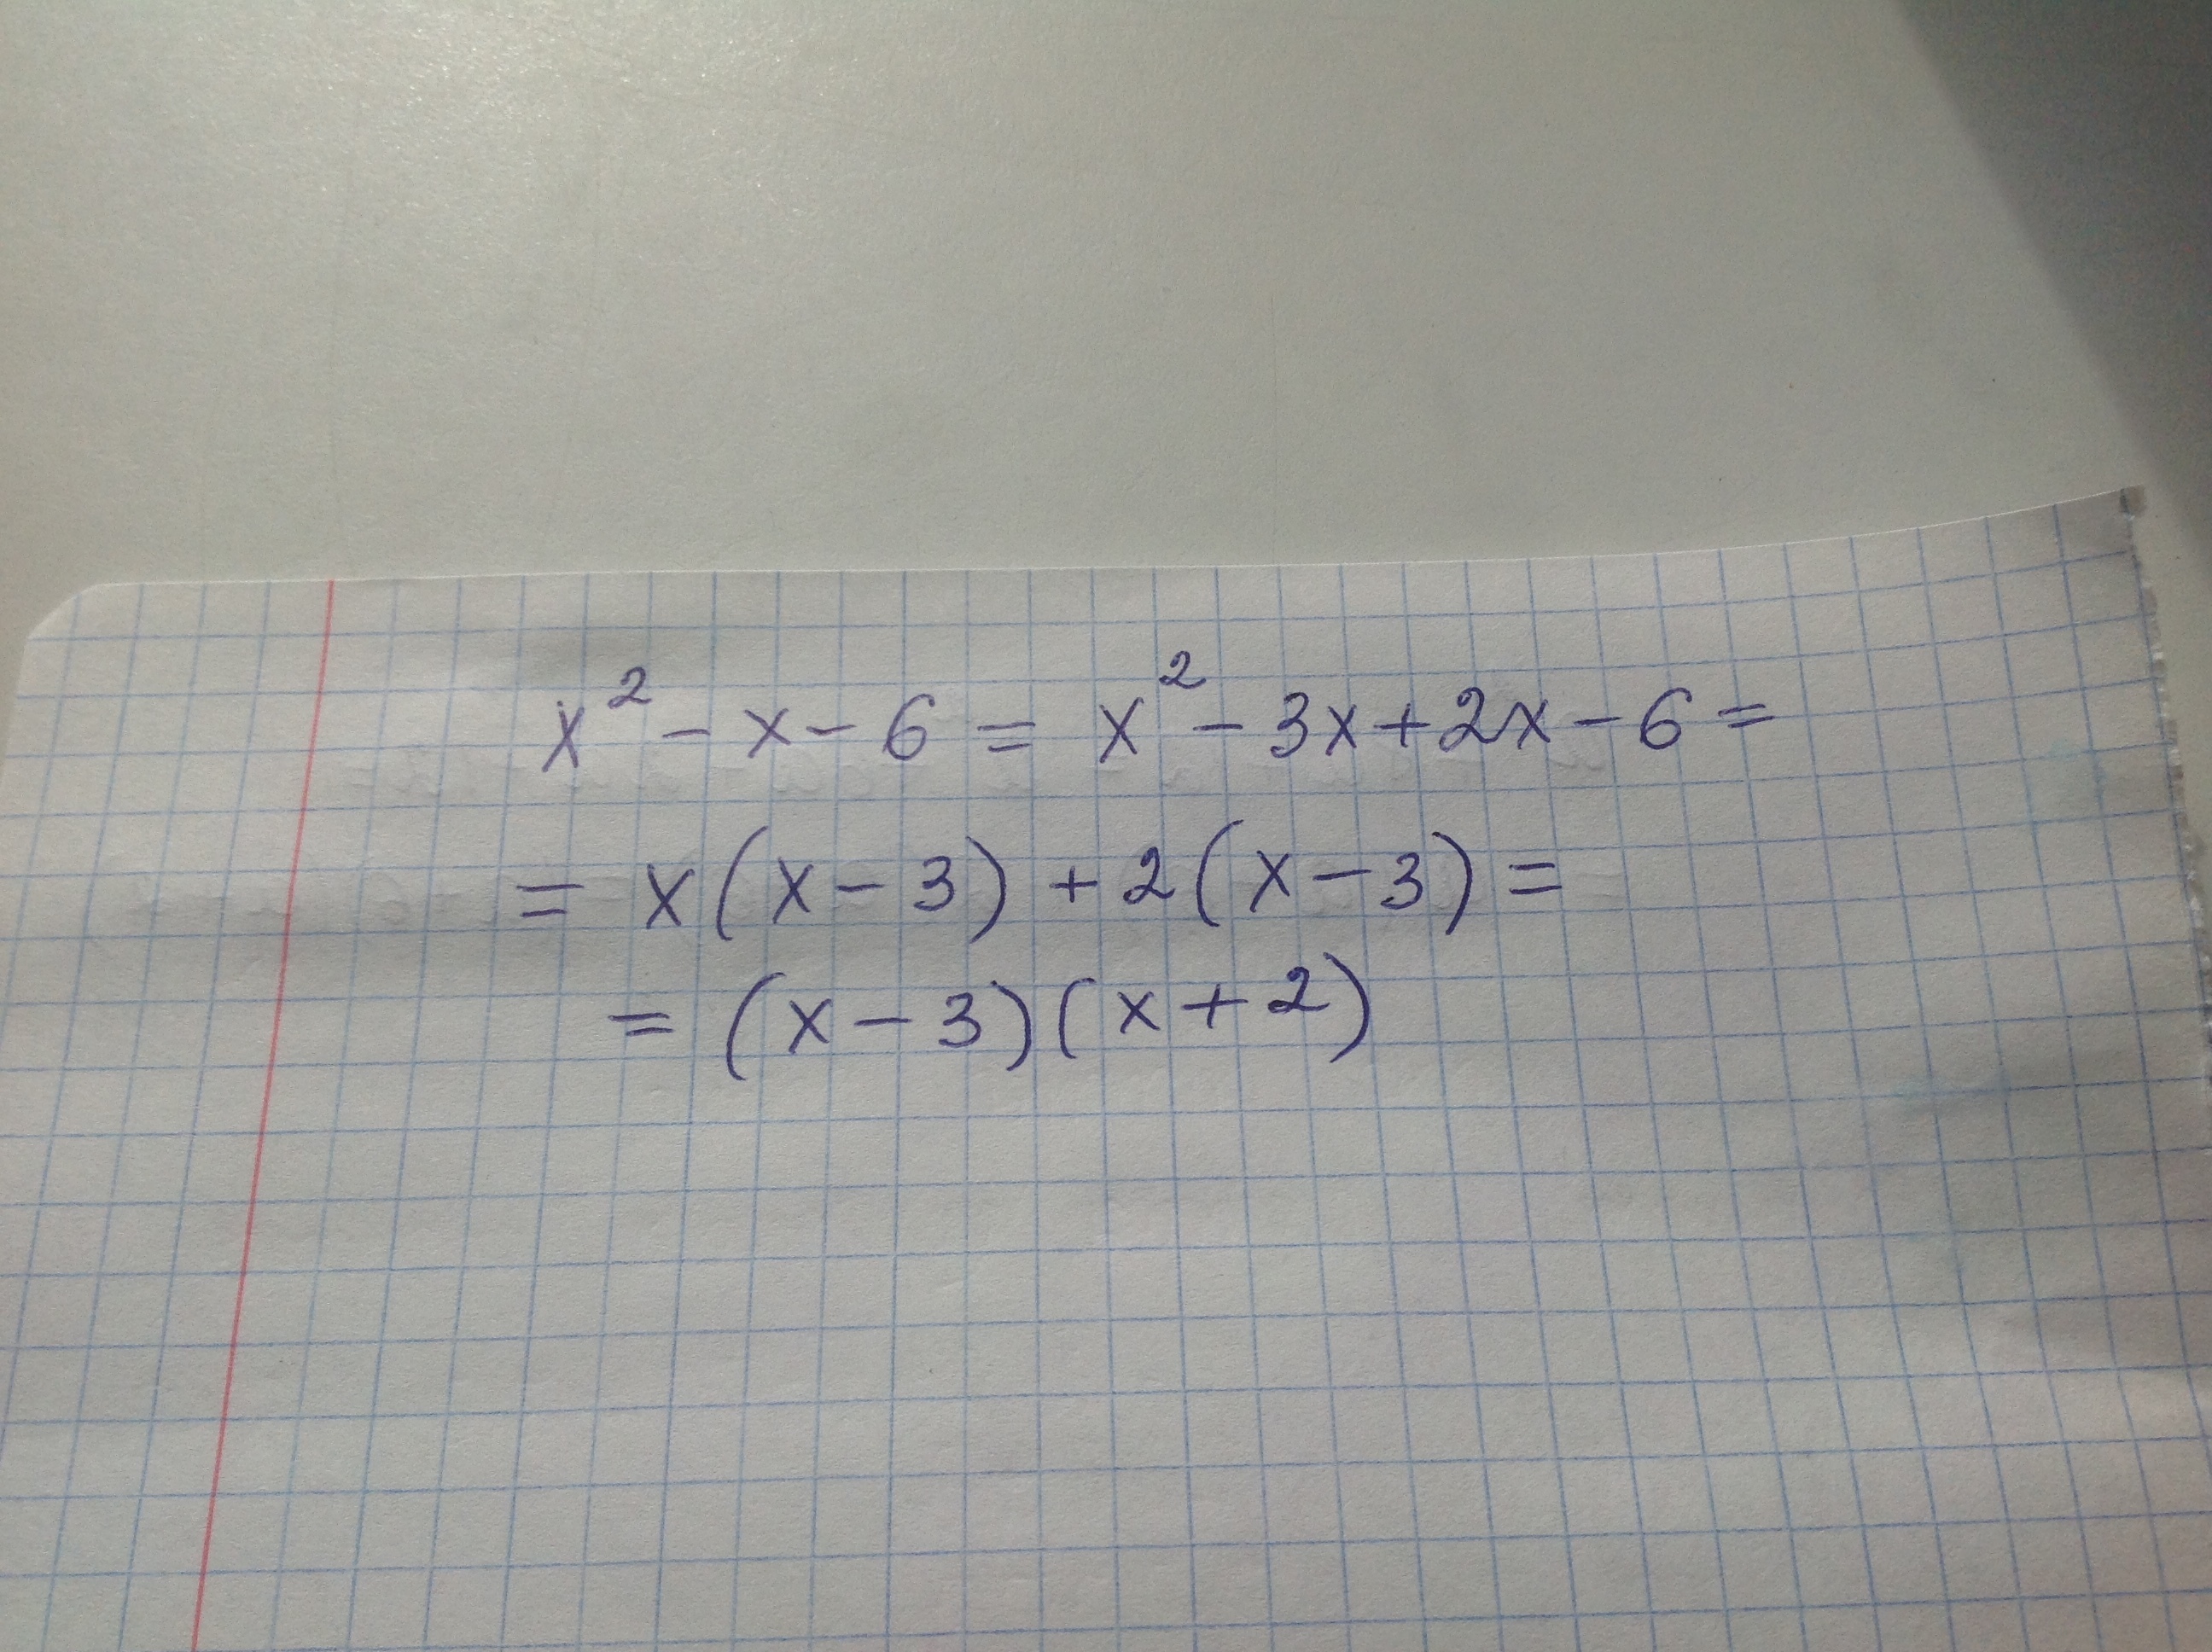 x² - x - 6 = x² - 3x + 2x - 6 =
= x(x - 3) + 2(x - 3) =
= (x - 3)(x + 2)